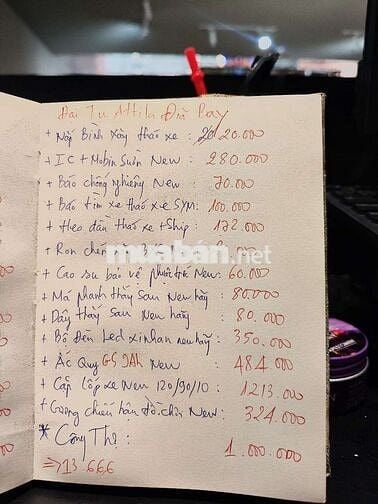 Đài Tu Attila Điả Bay
+ Nắp Bình Xăng tháo xe : 20.000
+ IC + Mobin Sườn New : 280.000
+ Báo chống nghiêng New : 70.000
+ Báo tim xe tháo xe SYM: 100.000
+ Heo dầu tháo xe + Ship : 172.000
+ Ron
muaban.net
+ Cao su bảo vệ New: 60.000
+ Má phanh thắng sau New hãg 80.000
+ Dây thắng sau New hãng : 80.000
+ Bộ Đèn Led xinhan new hãg : 350.000
+ Ắc Quy GS 5Ah New : 484.000
+ Cặp lốp xe New 120/90/10 : 1213.000
+ Gương chiếu hậu New : 324.000
* Công Thợ : 1.000.000
=> 13.666